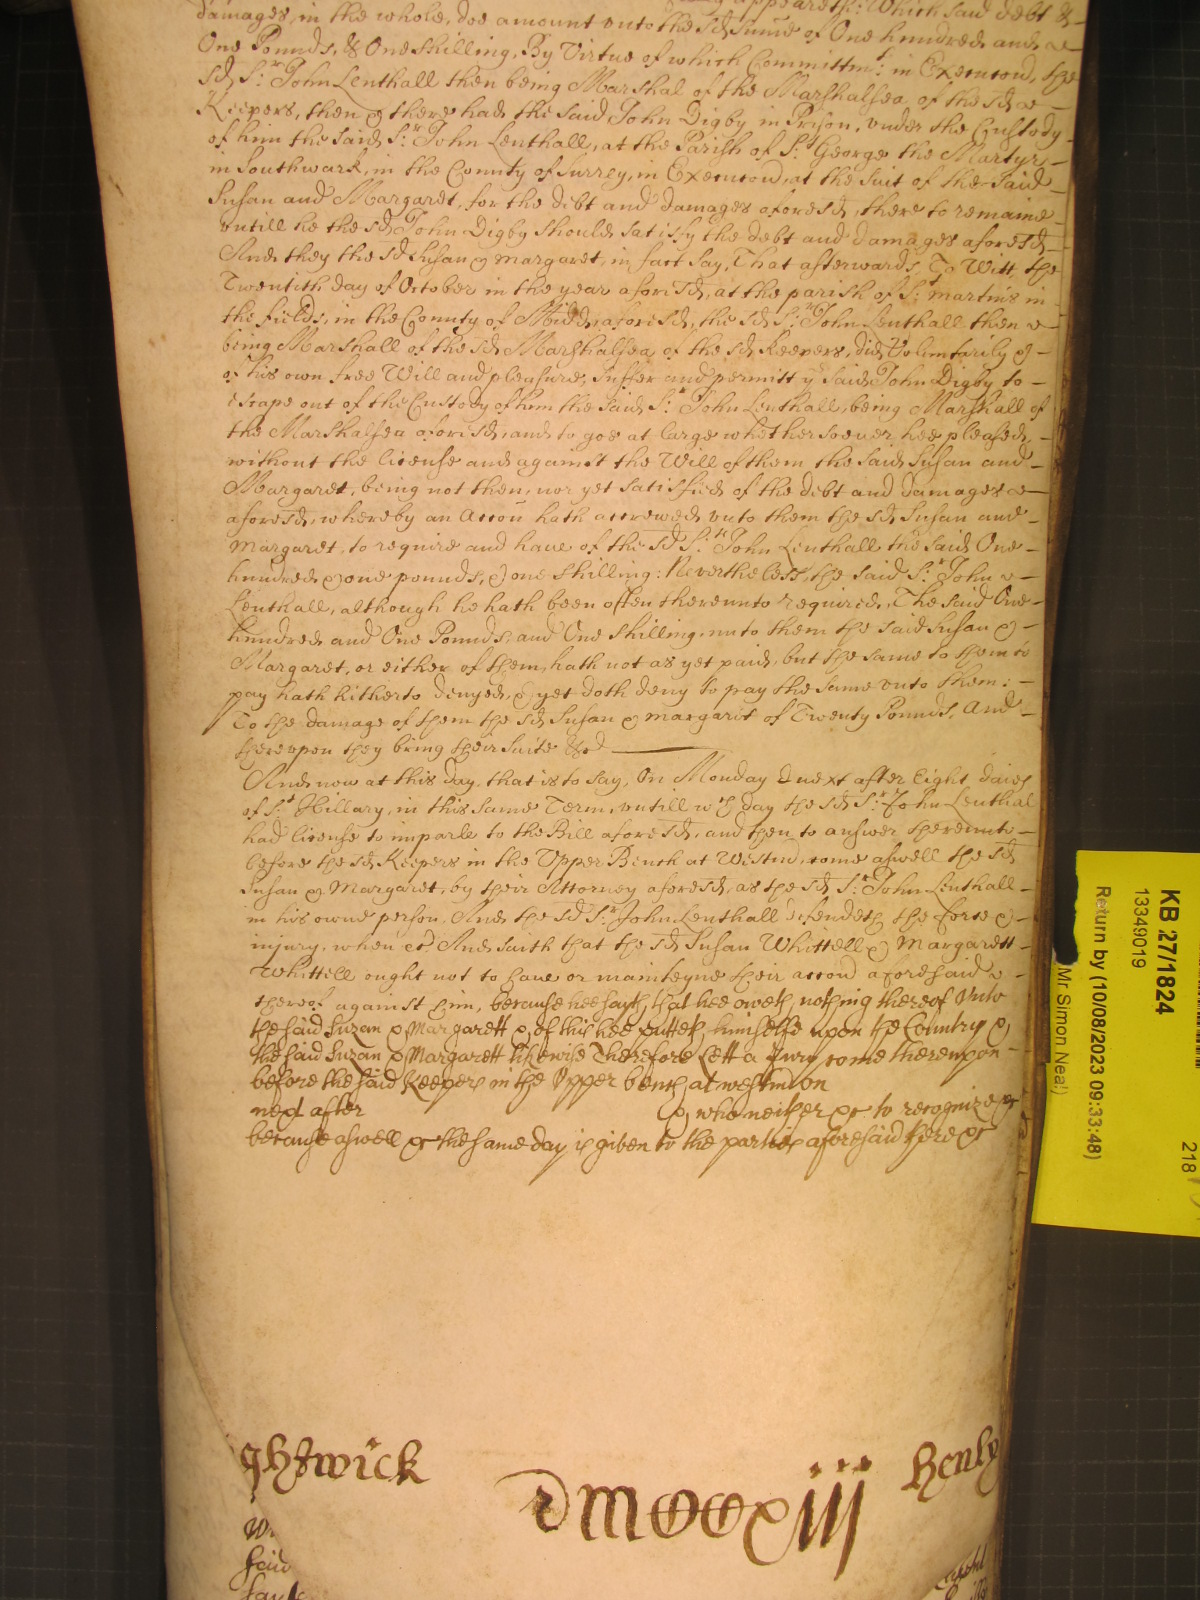 appeareth: Which said debt &
damages, in the whole, doe amount unto the sd sume of One hundred and
One Pounds, & One shilling, By Virtue of which Committmt: in Execucoñ, the
sd Sr: John Lenthall then being Marshal of the Marshalsea of the sd
Keepers, then & there had the said John Digby in Prison, under the Custody
of him the said Sr: John Lenthall, at the Parish of St: George the Martyr
in Southwark, in the County of Surrey, in Execucoñ, at the suit of the said
Susan and Margaret, for the debt and damages aforesd, there to remaine
untill he the sd John Digby should satisfy the debt and damages aforesd
And they the sd Susan & Margaret, in fact say, That afterwards, To Witt, the
Twentith day of October in the year aforesd, at the parish of St: Martins in
the fields, in the County of Midd, aforesd, the sd Sr: John Lenthall then
being Marshall of the sd Marshalsea of the sd Keepers, did Voluntarily &
of his own free Will and pleasure, suffer and permitt ye said John Digby to
escape out of the Custody of him the said Sr: John Lenthall, being Marshall of
the Marshalsea aforesd, and to goe at large whithersoever hee pleased,
without the license and against the Will of them the said Susan and
Margaret, being not then, nor yet satisfied of the debt and damages
aforesd, whereby an Accoñ hath accrewed unto them the sd Susan and
Margaret, to require and have of the sd Sr: John Lenthall the said One
hundred & one pounds, & one shilling: Neverthelesse, the said Sr: John
Lenthall, although he hath been often thereunto required, The said One
hundred and One Pounds, and One shilling, unto them the said Susan &
Margaret, or either of them, hath not as yet paid, but the same to them to
pay hath hitherto denyed, & yet doth deny to pay the same unto them:
To the damage of them the sd Susan & Margaret of Twenty Pounds, And
thereupon they bring their suite &c
And now at this day, that is to say, On Monday next after Eight daies
of St Hillary, in this same Term, untill wch day the sd Sr: John Lenthal
had license to imparle to the Bill aforesd, and then to answer thereunto
before the sd Keepers in the Upper Bench at Westm, come aswell the sd
Susan & Margaret, by their Attorney aforesd, as the sd Sr: John Lenthall
in his owne person, And the sd Sr: John Lenthall defendeth the force &
injury, when &c And saith that the sd Susan Whittell & Margarett
Whittell ought not to have or mainteyne their accoñ aforesaid
thereof against him, because hee sayth that hee oweth nothing thereof Unto
the said Suzan & Margarett & of this hee putteth himselfe upon the Country &
the said Suzan & Margarett likewise Therefore Lett a Jury come thereupon
before the said Keepers in the Upper bench at westm on
next after & who neither &c to recognize &c
because aswell &c the same day is given to the parties aforesaid there &c
Henly
KB 27/1824
13349019
Return by (10/08/2023 09:33:48)
Mr Simon Neal)
218